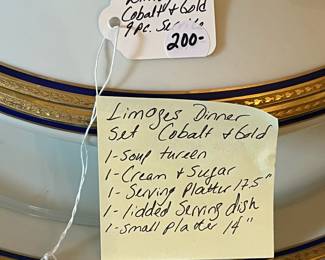 Dinner
Cobalt & Gold
9 pc. Service
200-
Limoges Dinner
Set Cobalt & Gold
1-Soup tureen
1-Cream & Sugar
1-Serving Platter 17.5"
1-lidded Serving dish
1-Small Platter 14"